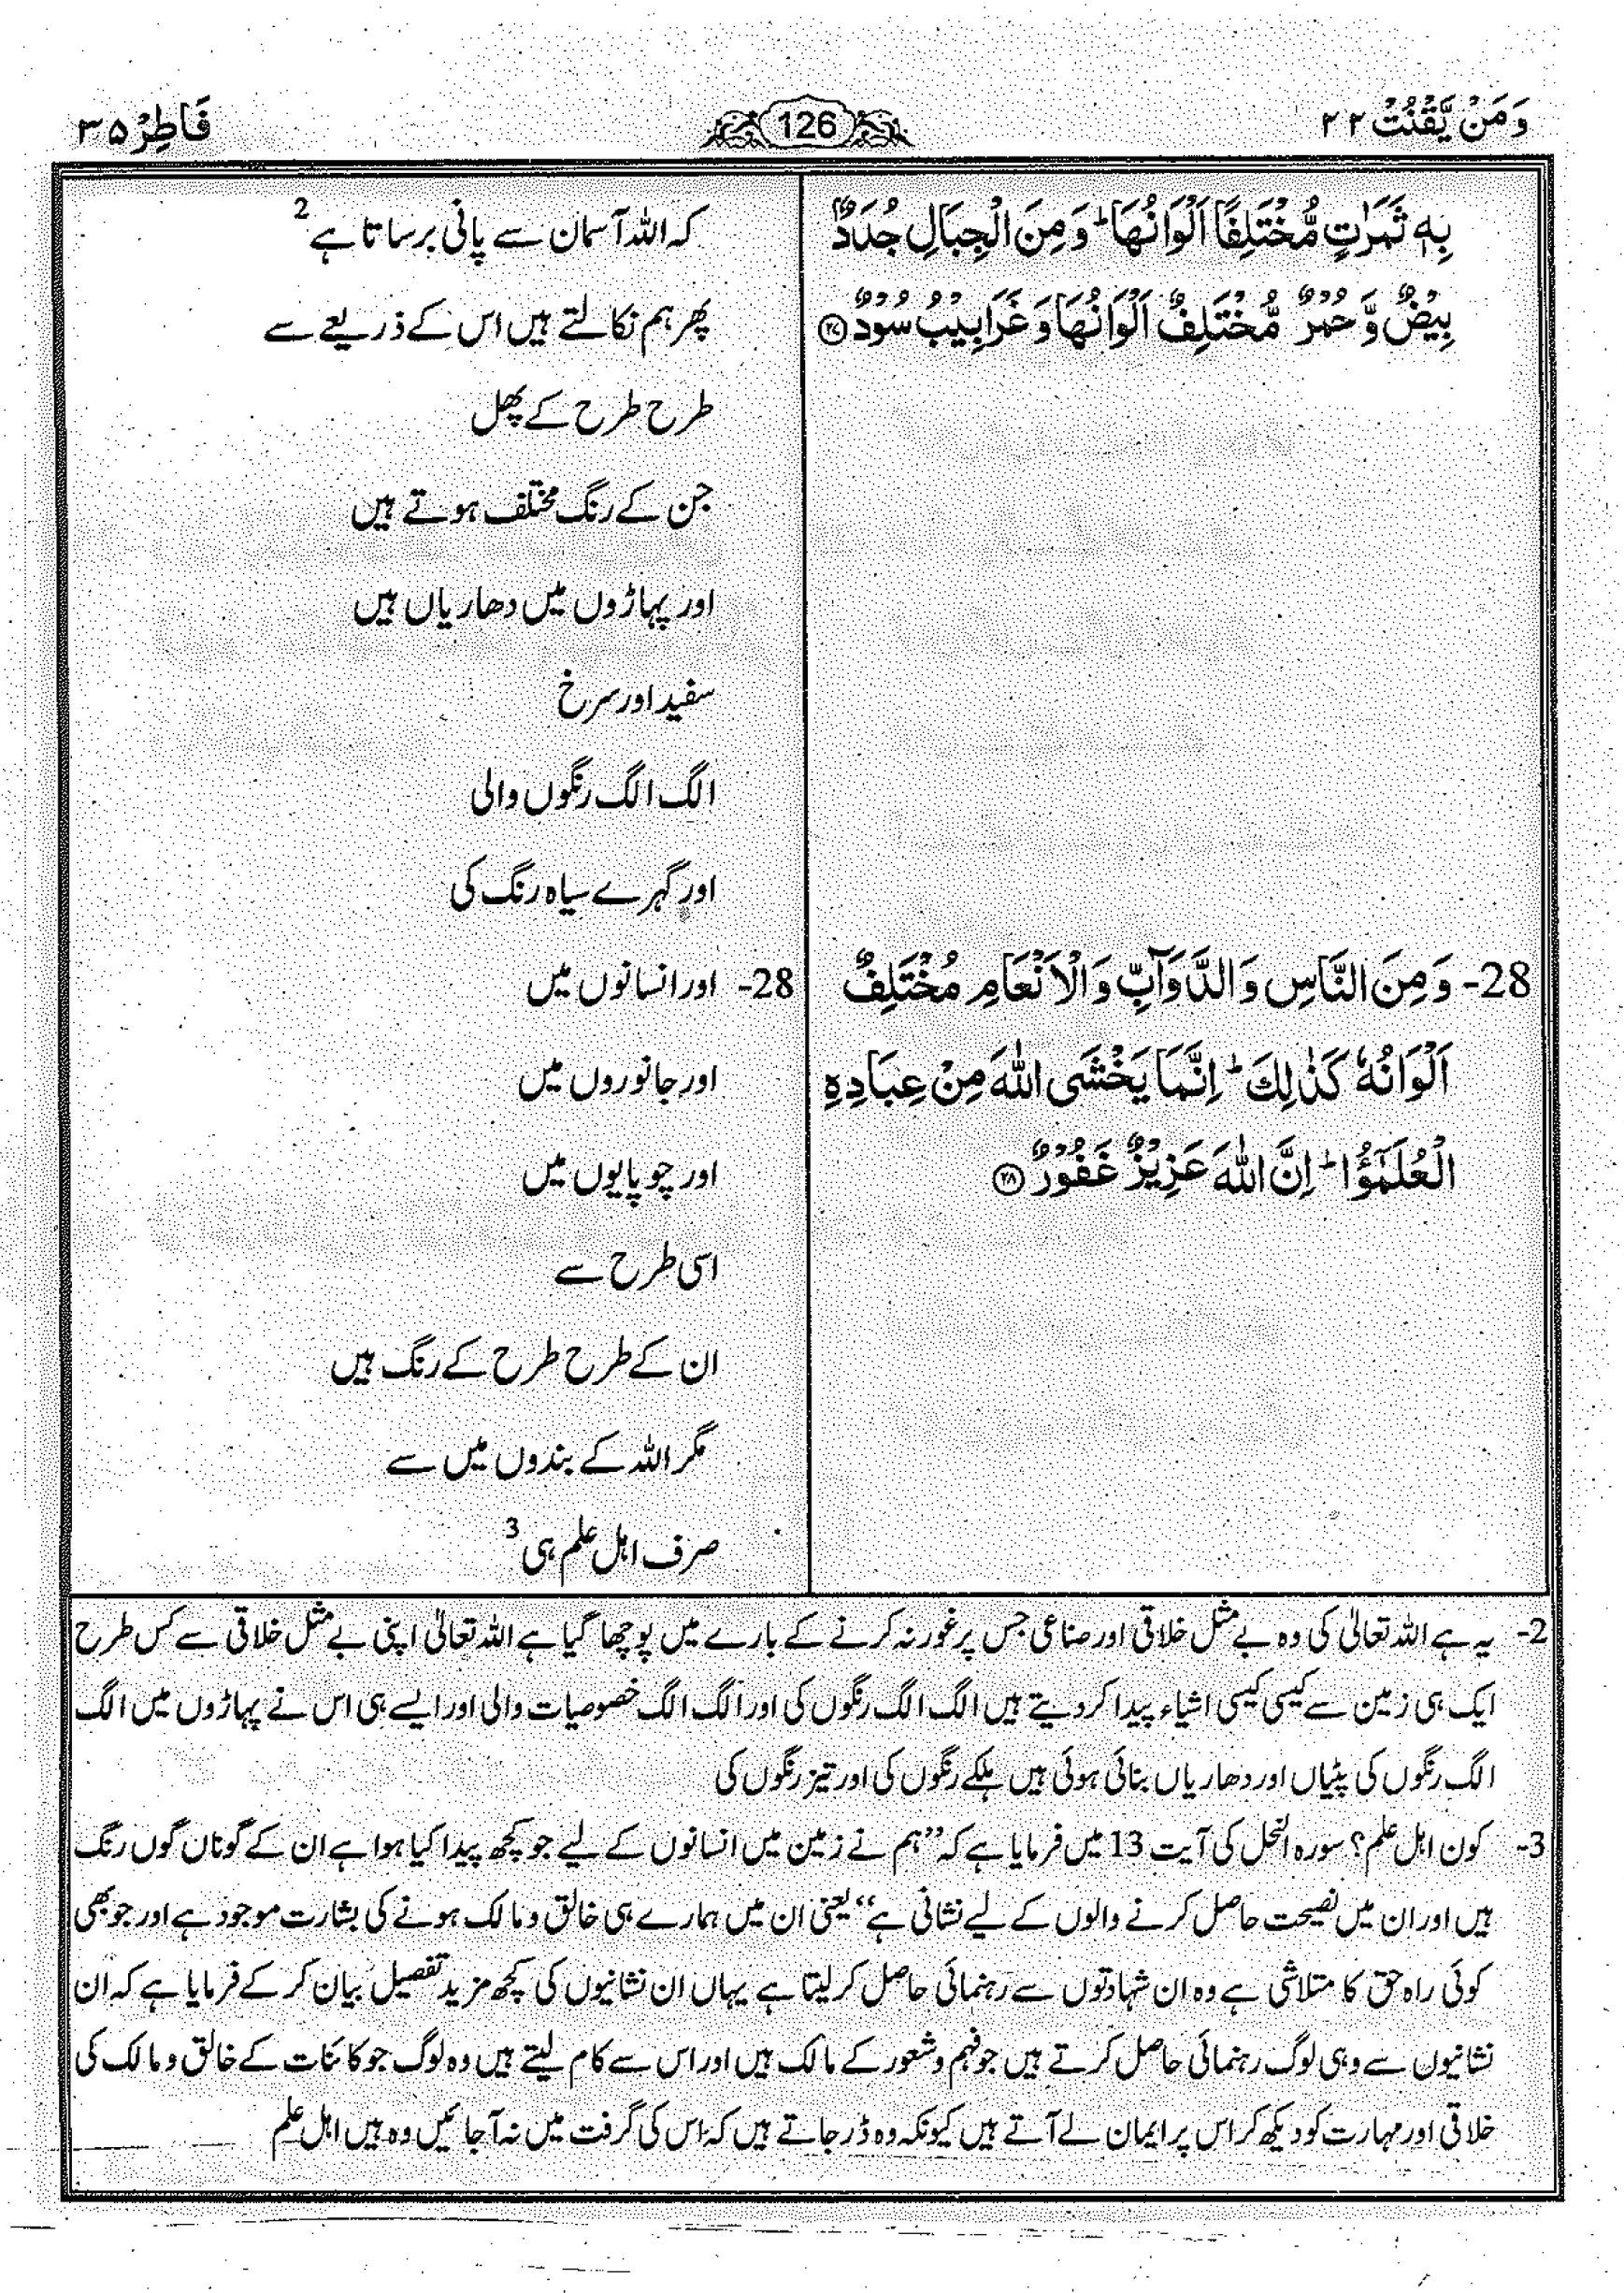 وَمَنْ يَّقْنُتْ ٢٢
126
فَاطِرْ ٣٥
بِهٖ ثَمَرٰتٍ مُّخْتَلِفًا اَلْوَانُهَا ؕ وَمِنَ الْجِبَالِ جُدَدٌۢ
بِيْضٌ وَّحُمْرٌ مُّخْتَلِفٌ اَلْوَانُهَا وَغَرَابِيْبُ سُوْدٌ ﴿٢٧﴾
28- وَمِنَ النَّاسِ وَالدَّوَآبِّ وَالْاَنْعَامِ مُخْتَلِفٌ
اَلْوَانُهٗ كَذٰلِكَ ؕ اِنَّمَا يَخْشَى اللّٰهَ مِنْ عِبَادِهِ
الْعُلَمٰٓؤُا ؕ اِنَّ اللّٰهَ عَزِيْزٌ غَفُوْرٌ ﴿٢٨﴾
کہ اللہ آسمان سے پانی برساتا ہے 2
پھر ہم نکالتے ہیں اس کے ذریعے سے
طرح طرح کے پھل
جن کے رنگ مختلف ہوتے ہیں
اور پہاڑوں میں دھاریاں ہیں
سفید اور سرخ
الگ الگ رنگوں والی
اور گہرے سیاہ رنگ کی
28- اور انسانوں میں
اور جانوروں میں
اور چوپایوں میں
اسی طرح سے
ان کے طرح طرح کے رنگ ہیں
مگر اللہ کے بندوں میں سے
صرف اہل علم ہی 3
2- یہ ہے اللہ تعالیٰ کی وہ بے مثل خلاقی اور صناعی جس پر غور نہ کرنے کے بارے میں پوچھا گیا ہے اللہ تعالیٰ اپنی بے مثل خلاقی سے کس طرح
ایک ہی زمین سے کیسی کیسی اشیاء پیدا کر دیتے ہیں الگ الگ رنگوں کی اور الگ الگ خصوصیات والی اور ایسے ہی اس نے پہاڑوں میں الگ
الگ رنگوں کی پٹیاں اور دھاریاں بنائی ہوئی ہیں ہلکے رنگوں کی اور تیز رنگوں کی
3- کون اہل علم؟ سورہ النحل کی آیت 13 میں فرمایا ہے کہ ”ہم نے زمین میں انسانوں کے لیے جو کچھ پیدا کیا ہوا ہے ان کے گوناں گوں رنگ
ہیں اور ان میں نصیحت حاصل کرنے والوں کے لیے نشانی ہے“ یعنی ان میں ہمارے ہی خالق و مالک ہونے کی بشارت موجود ہے اور جو بھی
کوئی راہ حق کا متلاشی ہے وہ ان شہادتوں سے رہنمائی حاصل کر لیتا ہے یہاں ان نشانیوں کی کچھ مزید تفصیل بیان کر کے فرمایا ہے کہ ان
نشانیوں سے وہی لوگ رہنمائی حاصل کرتے ہیں جو فہم و شعور کے مالک ہیں اور اس سے کام لیتے ہیں وہ لوگ جو کائنات کے خالق و مالک کی
خلاقی اور مہارت کو دیکھ کر اس پر ایمان لے آتے ہیں کیونکہ وہ ڈر جاتے ہیں کہ اس کی گرفت میں نہ آجائیں وہ ہیں اہل علم